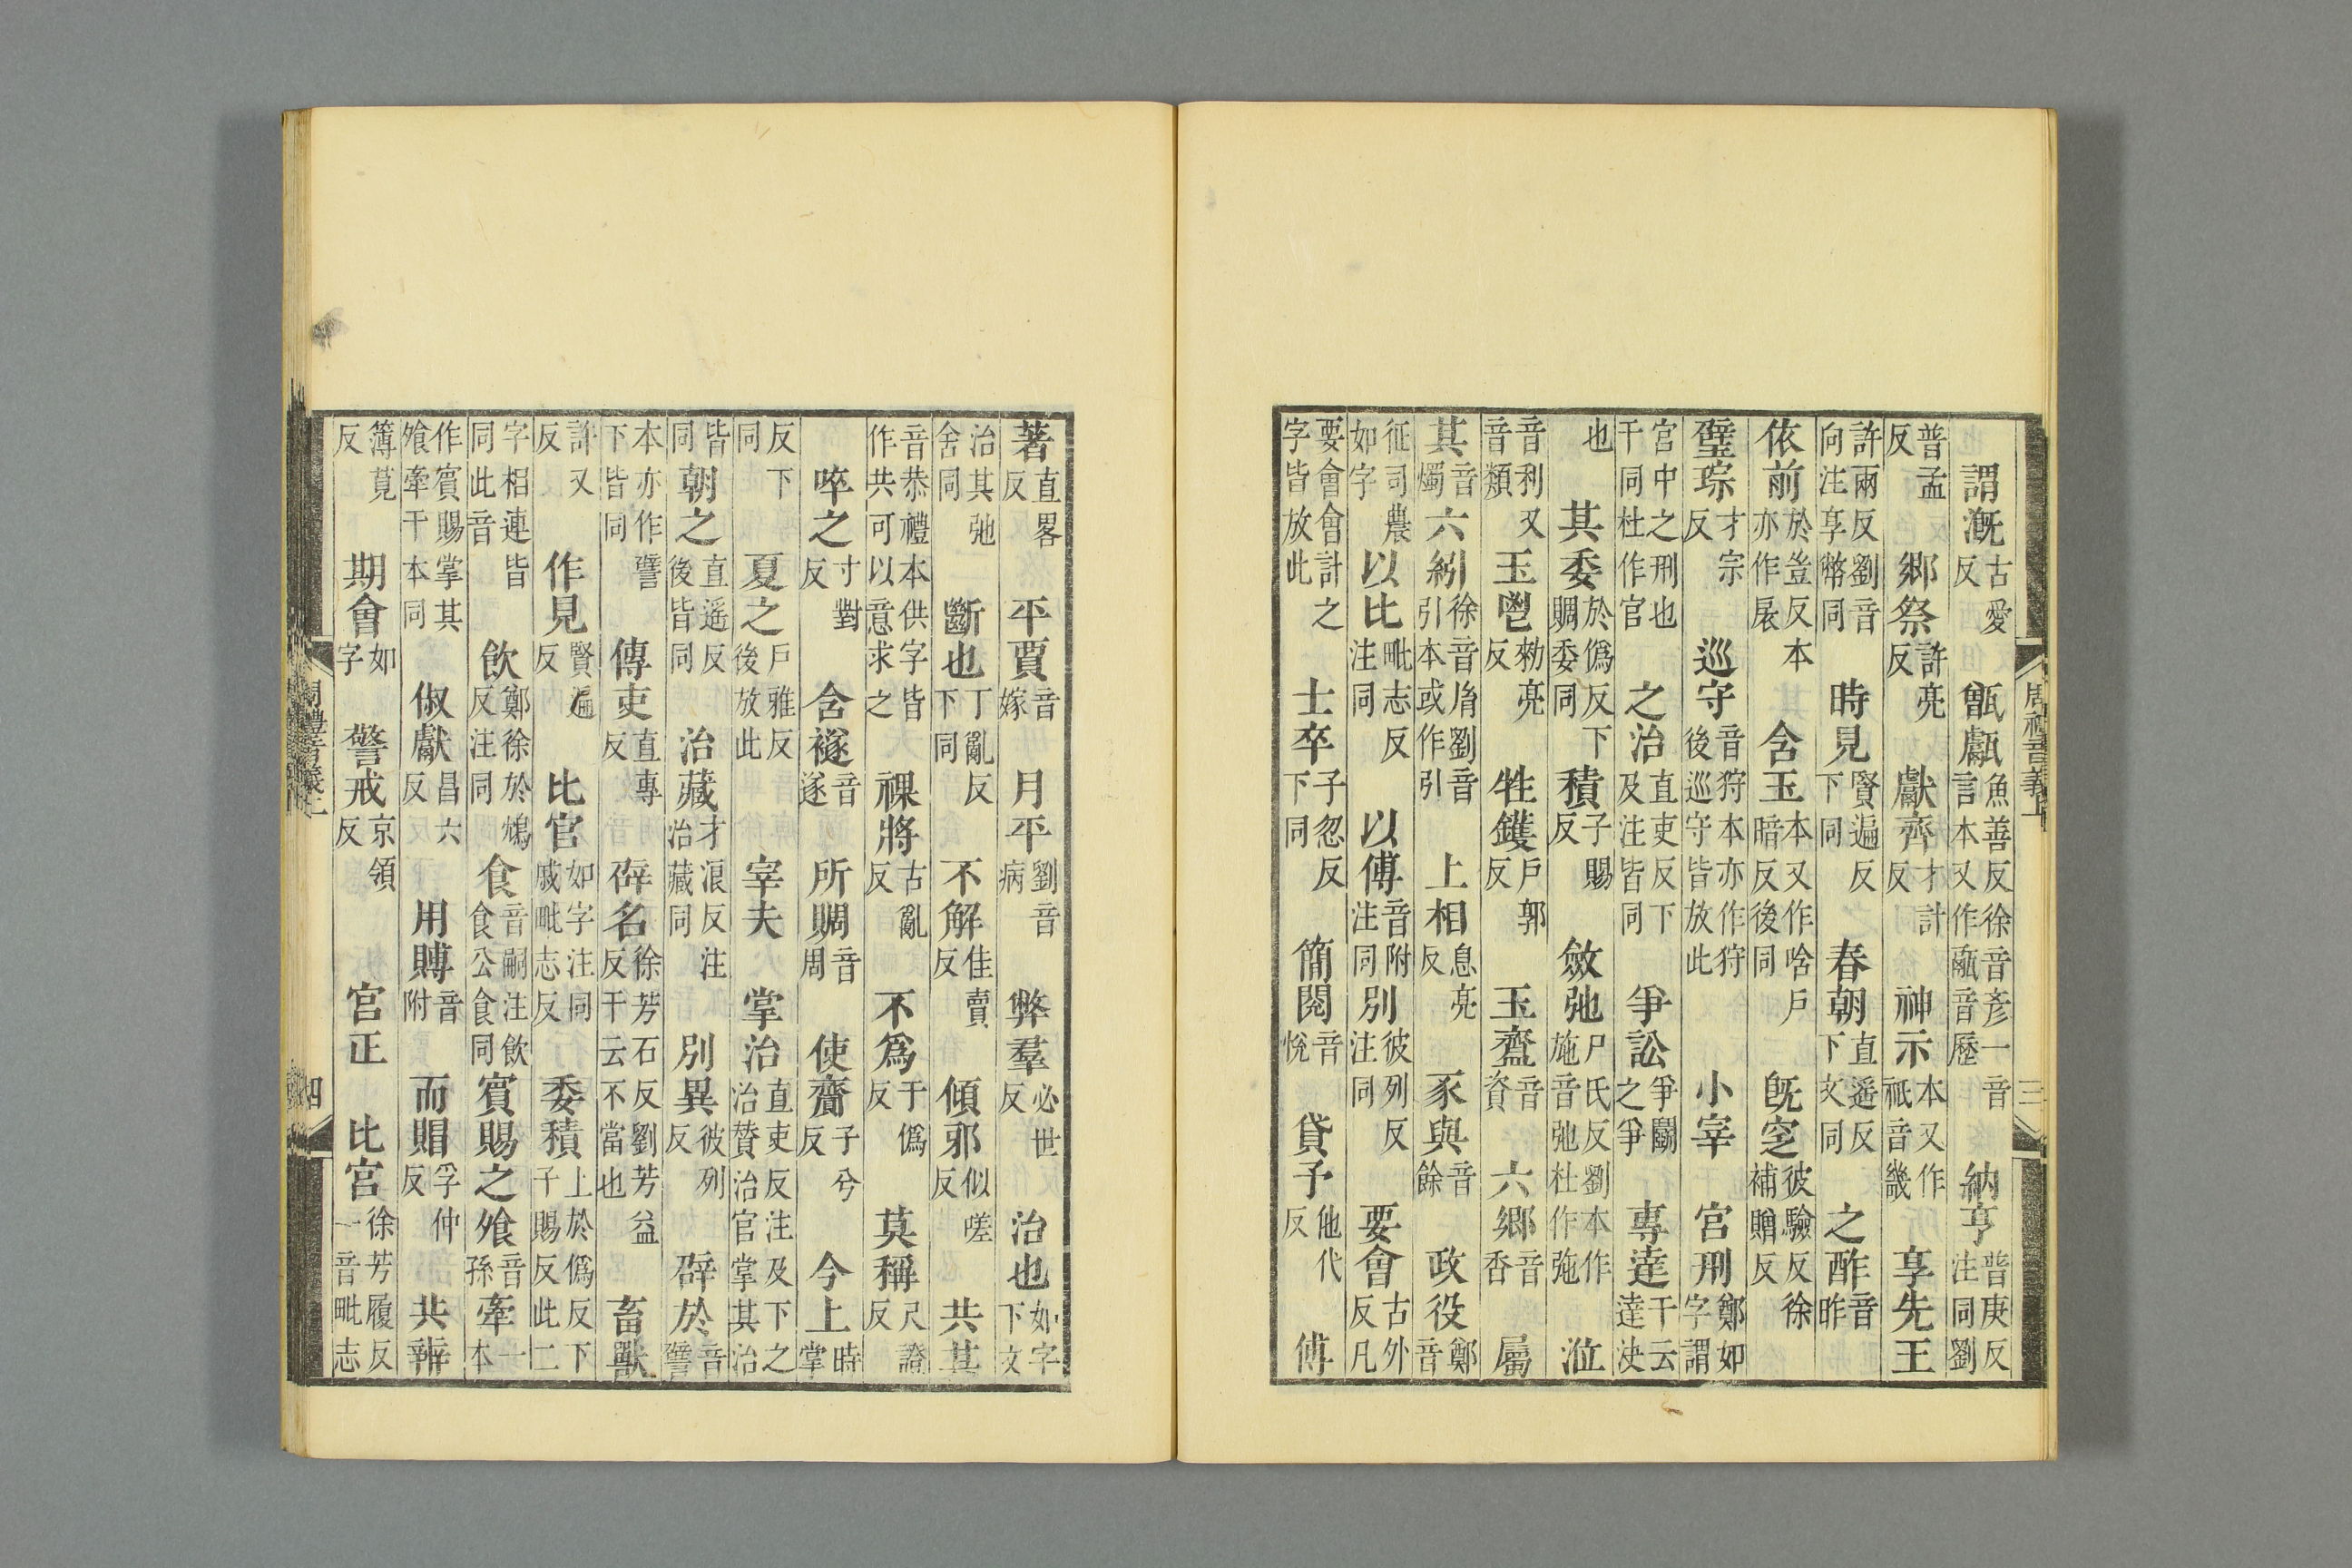 謂漑古愛反甑甗魚善反徐音彦一音言本又作甗音歷納亨普庚反注同劉
普孟反鄉祭許亮反獻齊才計反神示本又作祇音畿享先王
許兩反劉音向注享幣同時見賢遍反下同春朝直遥反下文同之酢音昨
依前於豈反本亦作扆含玉本又作唅戶暗反後同旣窆彼驗反徐補贈反
璧琮才宗反巡守音狩本亦作狩後巡守皆放此小宰宮刑鄭如字謂
宮中之刑也干同杜作官之治直吏反下及注皆同爭訟爭鬭之爭專達干云達决
也其委於僞反下賙委同積子賜反斂弛尸氏反劉本作施音弛杜作弛涖
音利又音類玉鬯勑亮反牲鑊戶郭反玉齍音資六鄉音香屬
其音燭六紖徐音胤劉音引本或作引上相息亮反豕與音餘政役鄭音
征司農如字以比毗志反注同以傅音附注同別彼列反注同要會古外反凡
要會會計之字皆放此士卒子忽反下同簡閱音悅貸予他代反傅
周禮音義上 三
著直畧反平賈音嫁月平劉音病弊羣必世反治也如字下文
治其弛舍同斷也丁亂反下同不解佳賣反傾邪似嗟反共其
音恭禮本供字皆作共可以意求之祼將古亂反不爲于僞反莫稱尺證反
啐之寸對反含襚音遂所賙音周使齎子兮反今上時掌
反下同夏之戶雅反後放此宰夫掌治直吏反注及下之治賛治官掌其治
皆同朝之直遥反後皆同治藏才浪反注治藏同別異彼列反辟於音譬
本亦作譬下皆同傳吏直專反辟名徐芳石反劉芳益反干云不當也畜獸
許又反作見賢遍反比官如字注同戚毗志反委積上於僞反下子賜反此二
字相連皆同此音飲鄭徐於鴆反注同食音嗣注飲食公食同賓賜之飧音孫牽一本
作賓賜掌其飧牽干本同俶獻昌六反用賻音附而賵孚仲反共辨
簿莧反期會如字警戒京領反宮正比宮徐芳履反一音毗志
周禮音義上 四